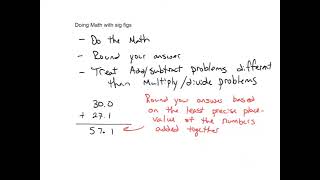 Doing Math with sig figs
- Do the Math
- Round your answer
- Treat Add/subtract problems different
than Multiply/divide problems
30.0
+ 27.1
57.1
Round your answer based
on the least precise place-
value of the numbers
added together